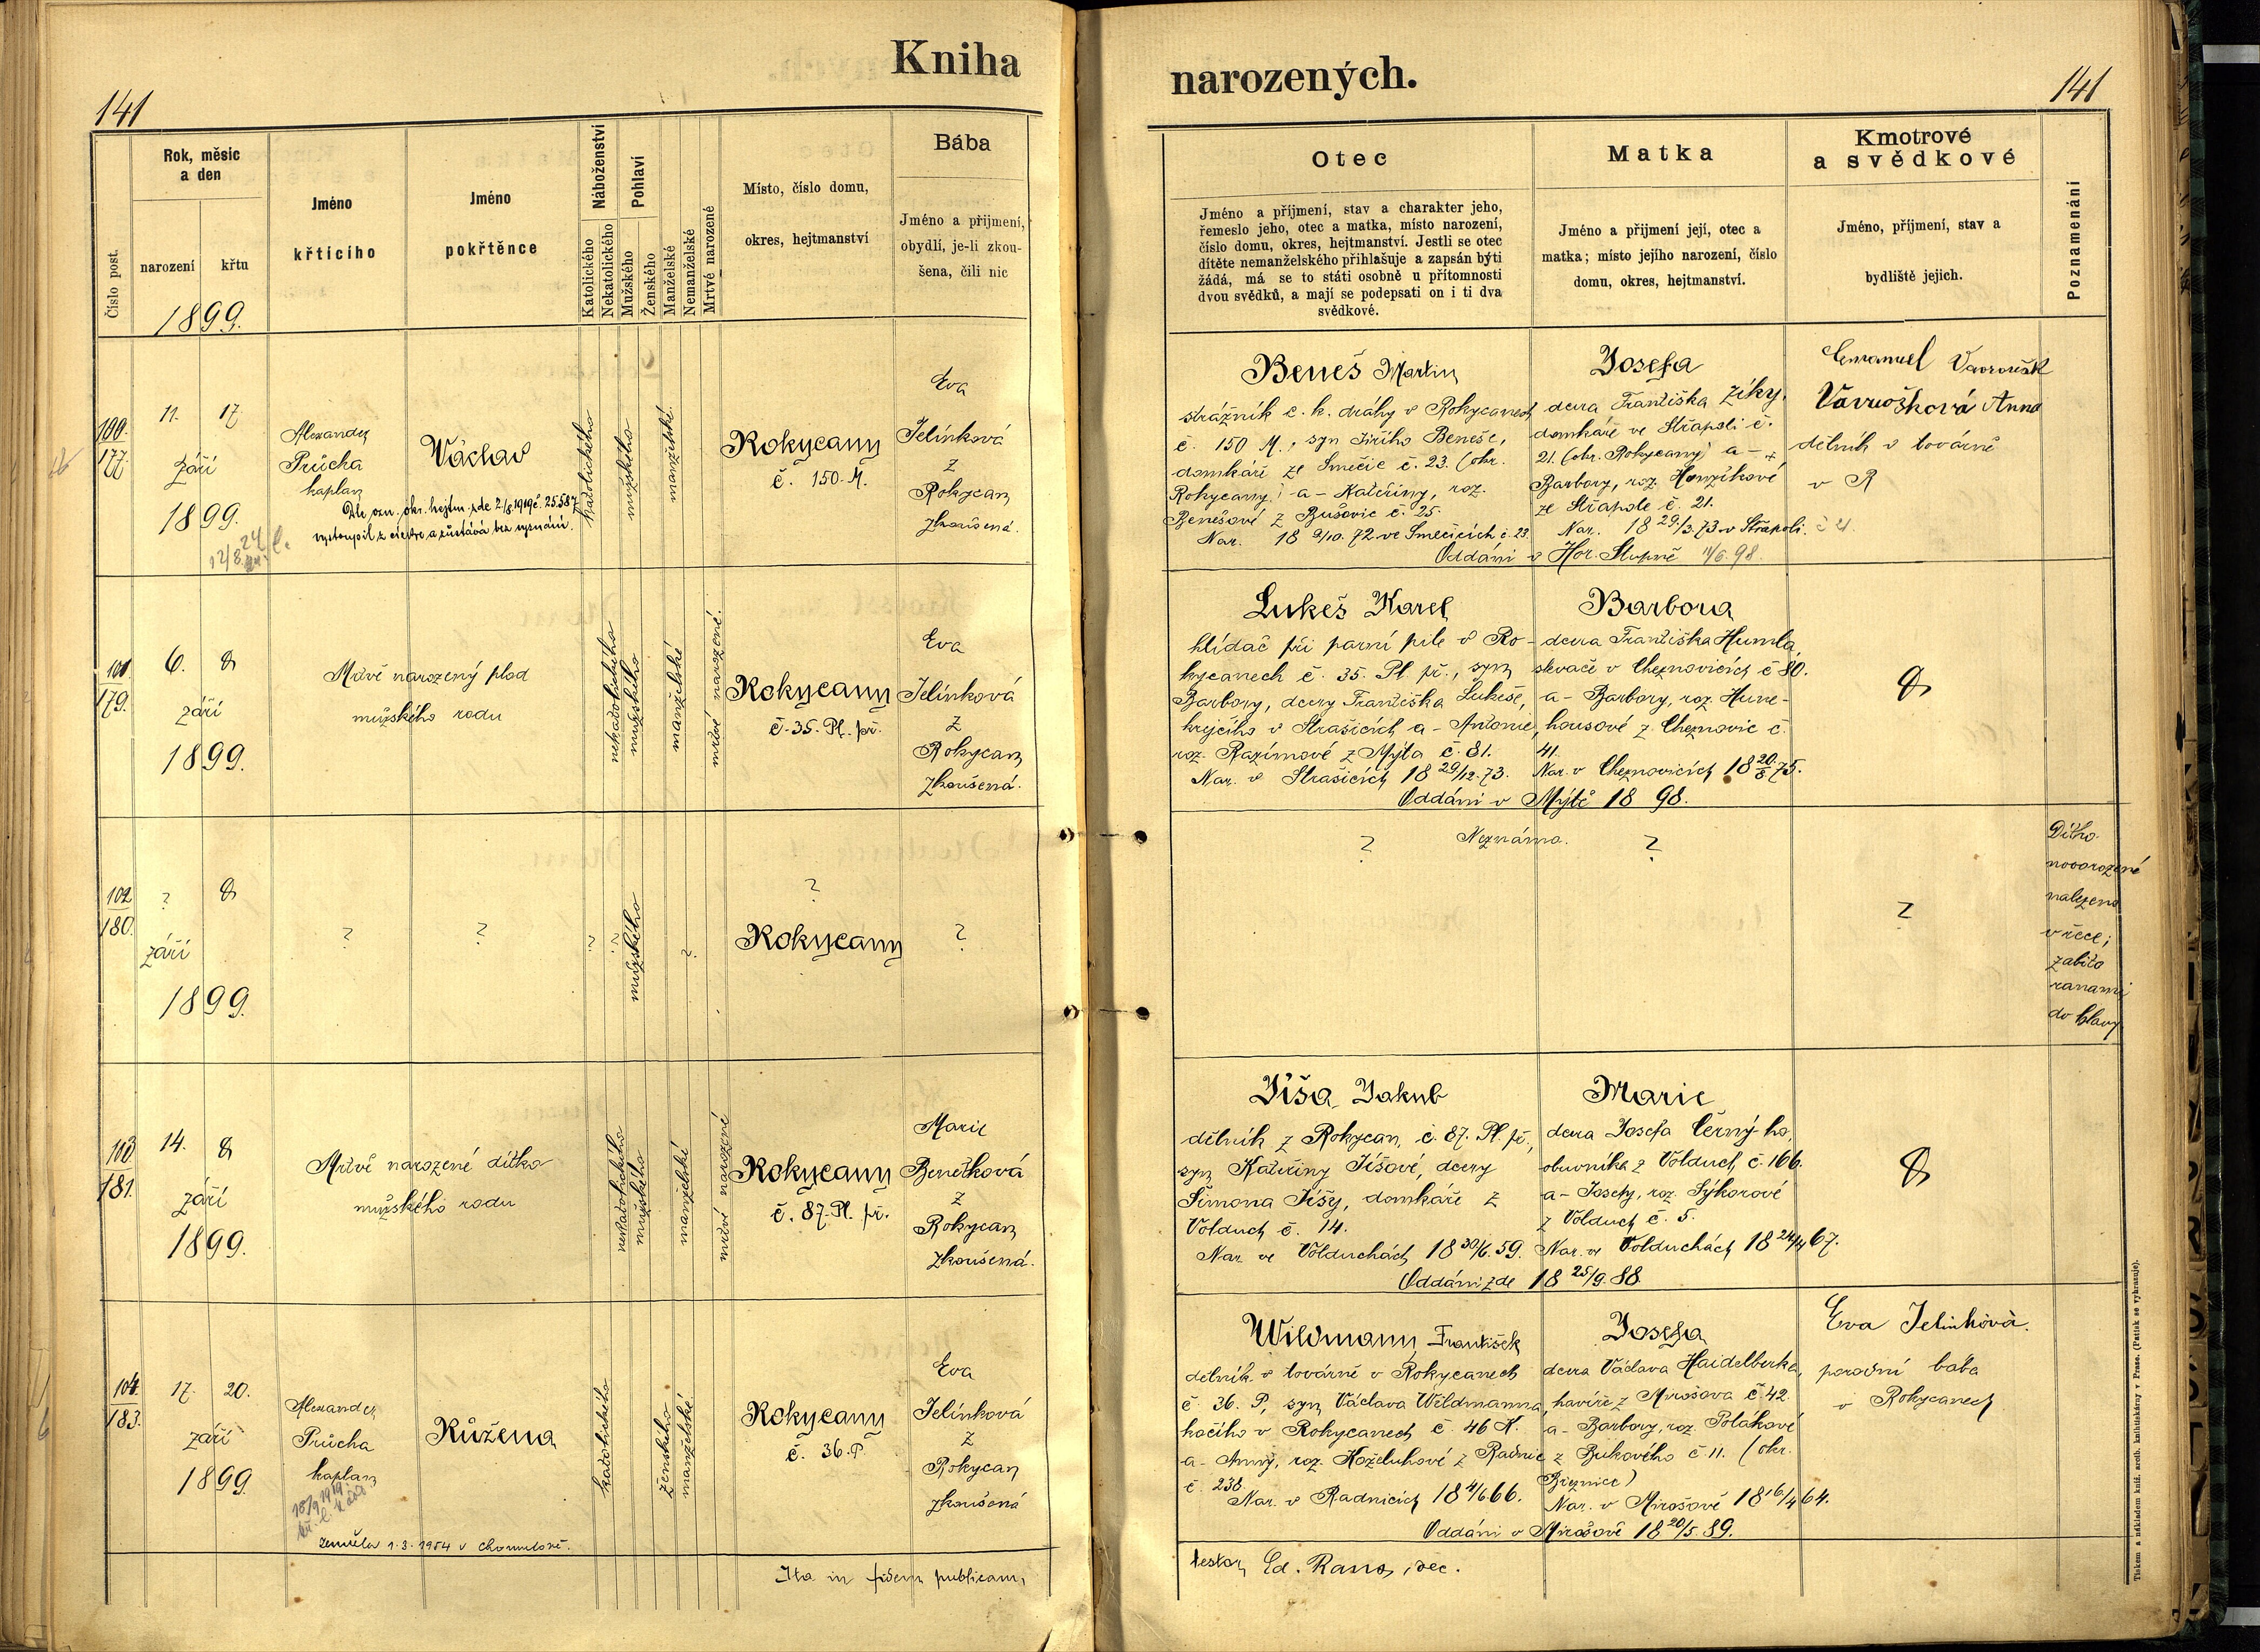 Kniha
141
Číslo post.
Rok, měsíc
a den
narození
křtu
1899.
Jméno
křtícího
Jméno
pokřtěnce
Náboženství
Katolického
Nekatolického
Pohlaví
Mužského
Ženského
Manželské
Nemanželské
Mrtvé narozené
Místo, číslo domu,
okres, hejtmanství
Bába
Jméno a přijmení,
obydlí, je-li zkou-
šena, čili nic
100.
177.
11. 17.
září
1899.
Alexander
Průcha
kaplan
Václav
Dle ozn. okr. hejtm. zde 2/8 1919 č. 25.587
vystoupil z církve a zůstává bez vyznání.
katolického
mužského
manželské
Rokycany
č. 150. M.
Eva
Jelínková
z
Rokycan
zkoušená.
101.
179.
6.
září
1899.
Mrtvě narozený plod
mužského rodu
nekatolického
mužského
manželské
mrtvé narozené.
Rokycany
č. 35. Pl. př.
Eva
Jelínková
z
Rokycan
zkoušená.
102
180.
?
září
1899.
?
?
?
?
mužského
?
?
Rokycany
?
103
181.
14.
září
1899.
Mrtvě narozené dítko
mužského rodu
nekatolického
mužského
manželské
mrtvé narozené
Rokycany
č. 87. Pl. př.
Marie
Benetková
z
Rokycan
zkoušená.
104.
183.
17. 20.
září
1899.
Alexander
Průcha
kaplan
Růžena
zemřela 1.3.1954 v Chomutově.
katolického
ženského
manželské
Rokycany
č. 36. P.
Eva
Jelínková
z
Rokycan
zkoušená
Ita in fidem publicam,
narozených.
141
Otec
Jméno a příjmení, stav a charakter jeho,
řemeslo jeho, otec a matka, místo narození,
číslo domu, okres, hejtmanství. Jestli se otec
dítěte nemanželského přihlašuje a zapsán býti
žádá, má se to státi osobně u přítomnosti
dvou svědků, a mají se podepsati on i ti dva
svědkové.
Matka
Jméno a přijmení její, otec a
matka; místo jejího narození, číslo
domu, okres, hejtmanství.
Kmotrové
a svědkové
Jméno, příjmení, stav a
bydliště jejich.
Poznamenání
Beneš Martin
strážník c. k. dráhy v Rokycanech
č. 150 M., syn Jiřího Beneše,
domkáře ze Smečic č. 23. (okr.
Rokycany) a - Kateřiny, roz.
Benešové z Bušovic č. 25.
Nar. 18 9/10. 72 ve Smečicích č. 23.
Josefa
dcera Františka Zíky,
domkáře ve Střapoli č.
21. (okr. Rokycany) a -
Barbory, roz. Honzíkové
ze Střapole č. 21.
Nar. 18 29/3. 73 v Střapoli. č 21.
Oddáni v Hor. Stupně 14/6. 98.
Emanuel Vavroušek
Vavroušková Anna
dělník v továrně
v R
Lukeš Karel
hlídač při parní pile v Ro-
kycanech č. 35. Pl. př., syn
Barbory, dcery Františka Lukeše,
krejčího v Strašicích a - Antonie,
roz. Razímové z Mýta č. 81.
Nar. v Strašicích 18 29/12. 73.
Barbora
dcera Františka Humla,
slevače v Cheznovicích č 80.
a - Barbory, roz. Hune-
housové z Cheznovic č.
41.
Nar. v Cheznovicích 18 20/8 75.
Oddáni v Mýtě 18 98.
? Neznámo. ?
?
Dítko
novorozené
nalezeno
v řece;
zabito
ranami
do hlavy
Jíša Jakub
dělník z Rokycan, č. 87. Pl. př.,
syn Kateřiny Jíšové, dcery
Šimona Jíšy, domkáře z
Volduch č. 14.
Nar. ve Volduchách 18 30/6. 59.
Marie
dcera Josefa Černý-ho,
obuvníka z Volduch č. 166.
a - Josefy, roz. Sýkorové
z Volduch č. 5.
Nar. ve Volduchách 18 24/4 67.
Oddáni zde 18 25/9. 88.
Wildmann František
dělník v továrně v Rokycanech
č. 36. P., syn Václava Wildmanna,
kočího v Rokycanech č. 46 K.
a - Anny, roz. Koželuhové z Radnic
č. 238.
Nar. v Radnicích 18 4/6. 66.
Josefa
dcera Václava Haidelberka,
havíře z Mirošova č. 42.
a - Barbory, roz. Polákové
z Bukového č. 11. (okr.
Březnice)
Nar. v Mirošově 18 16/4 64.
Oddáni v Mirošově 18 20/5. 89.
Eva Jelinková.
porodní bába
v Rokycanech
testor Ed. Rana, dec.
Tiskem a nákladem kníž. arcib. knihtiskárny v Praze. (Patisk se vyhrazuje).